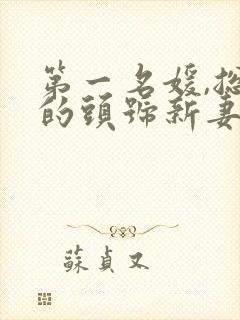 第一名媛,
的頭號新妻
蘇貞又